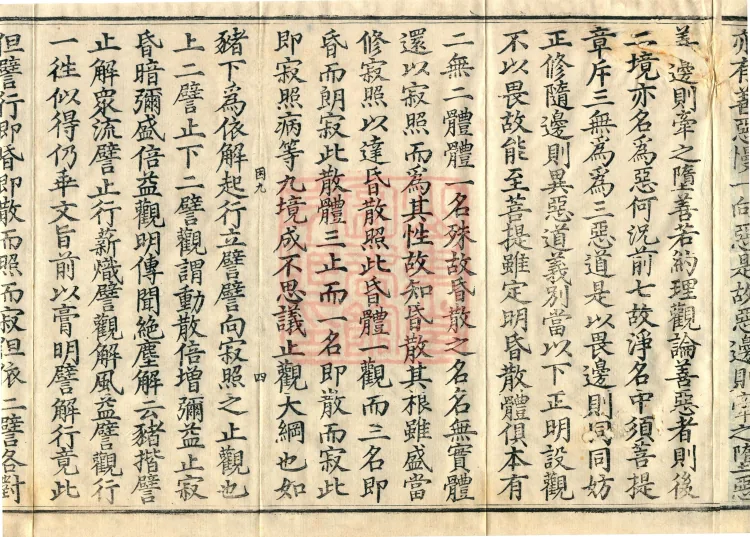 亦有善惡惧一向惡是故惡邊則牽之墮惡
善邊則牽之墮善若約理觀論善惡者則後
二境亦名為惡何況前七故淨名中須菩提
章斥三無為為三惡道是以畏邊則同同妨
正修隨邊則異惡道義別當以下正明設觀
不以畏故能至菩提雖定明昏散體俱本有
二無二體體一名殊故昏散之名名無實體
還以寂照而爲其性故知昏散其根雖盛當
修寂照以達昏散照此昏體一觀而三名即
昏而朗寂此散體三止而一名即散而寂此
即寂照病等九境成不思議止觀大綱也如
囯九
四
豬下爲依解起行立譬譬向寂照之止觀也
上二譬止下二譬觀謂動散倍增彌益止寂
昏暗彌盛倍益觀明傳聞絶塵解云豬揩譬
止解衆流譬止行薪熾譬觀解風益譬觀行
一往似得仍乖文旨前以膏明譬解行竟此
但譬行即昏即散而照而寂但依二譬各對